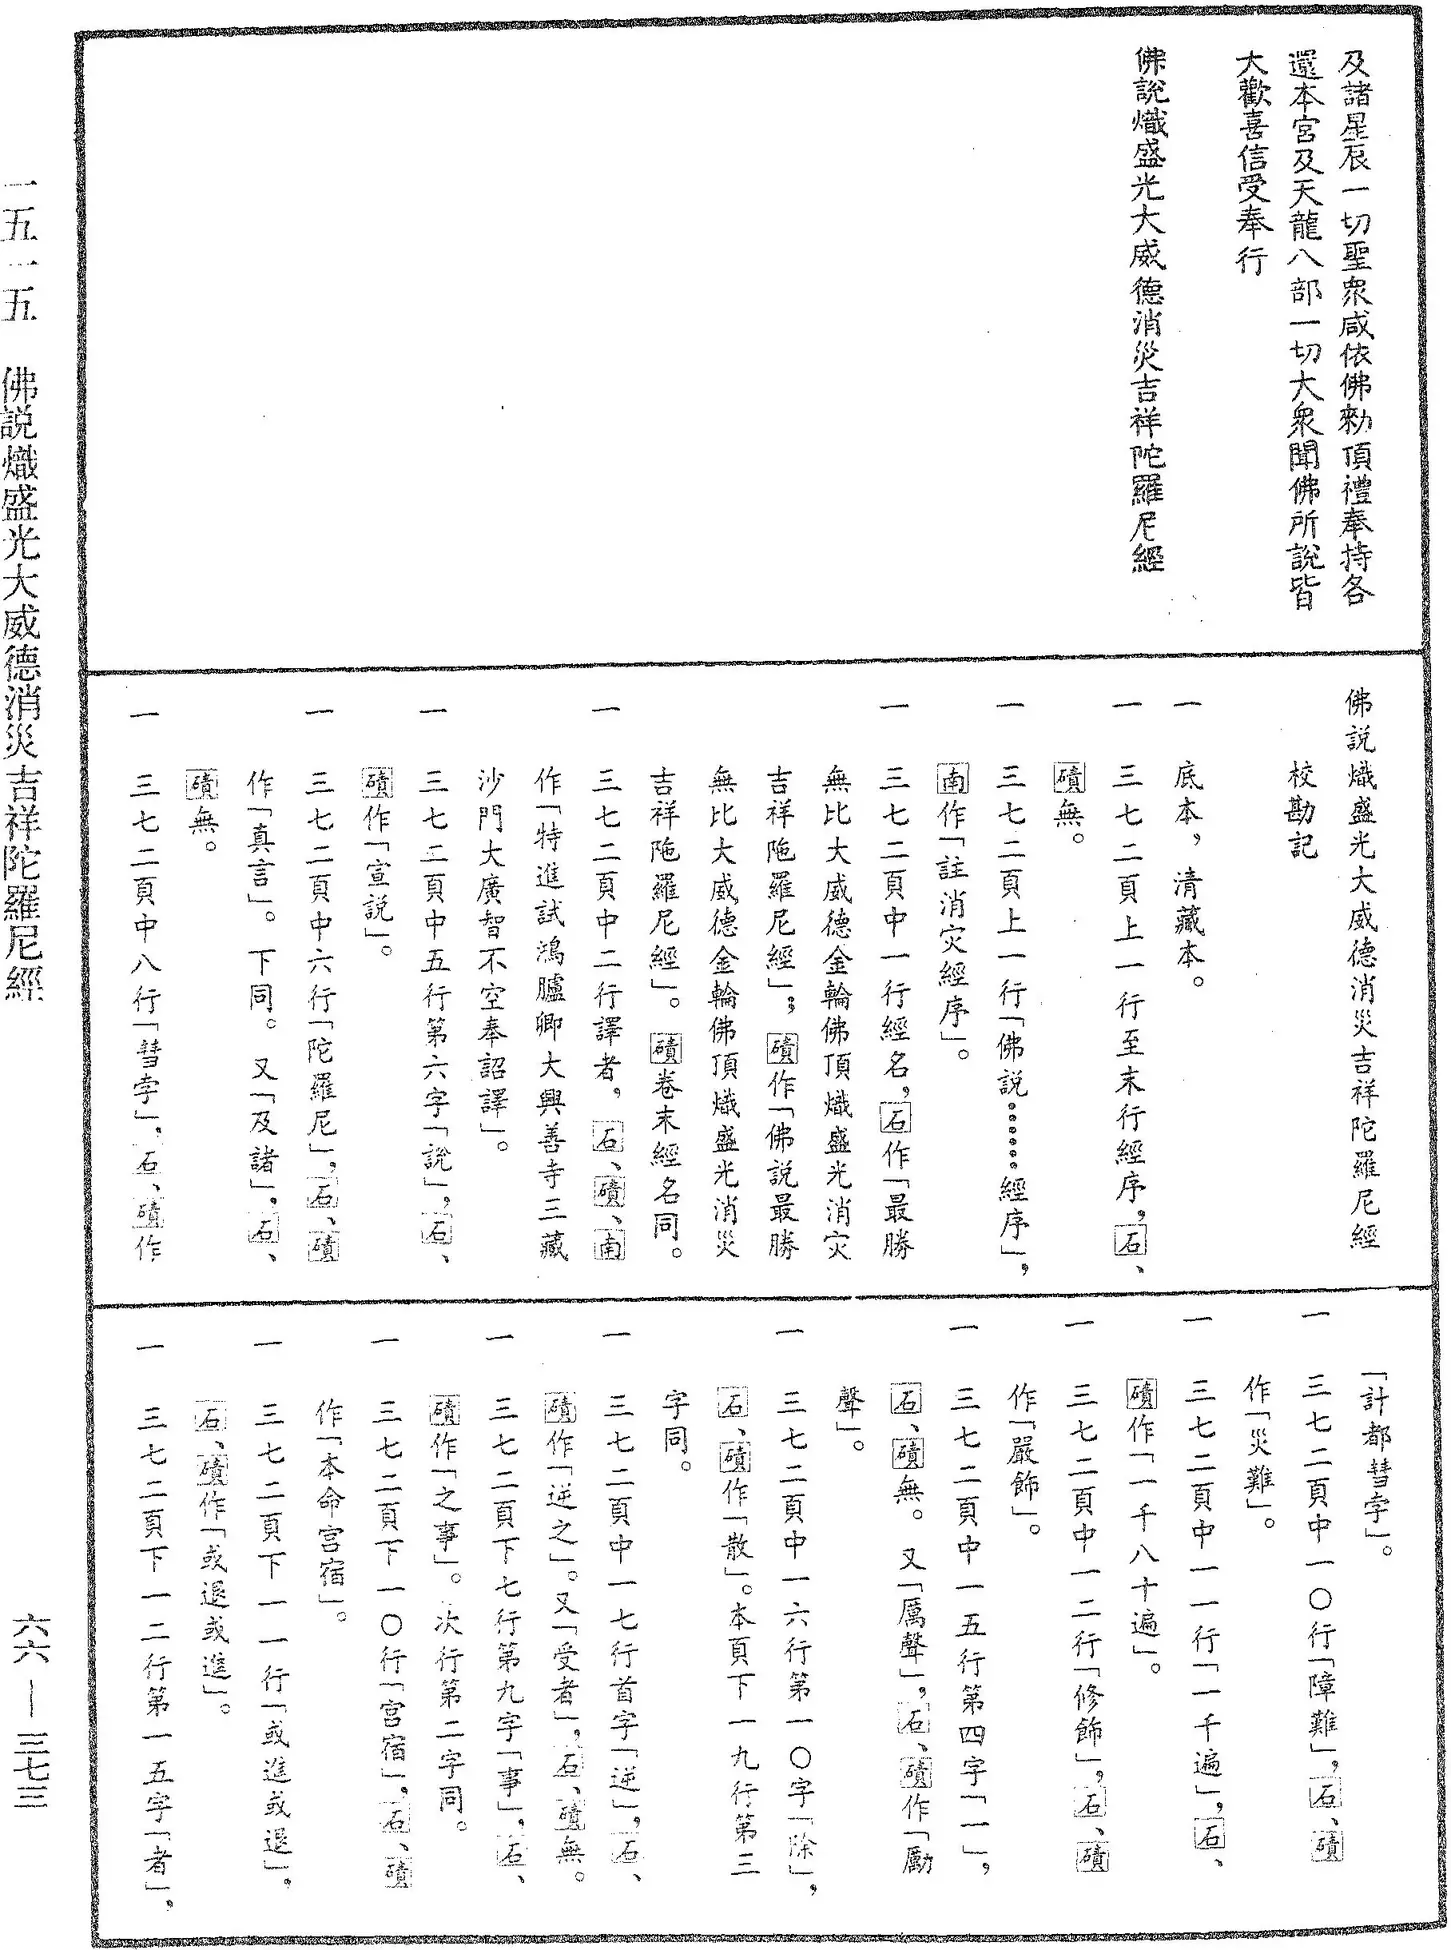 及諸星辰一切聖眾咸依佛勑頂禮奉持各
還本宮及天龍八部一切大眾聞佛所說皆
大歡喜信受奉行
佛說熾盛光大威德消災吉祥陀羅尼經
佛説熾盛光大威德消災吉祥陀羅尼經
校勘記
一　底本，清藏本。
一　三七二頁上一行至末行經序，石、
磧無。
一　三七二頁上一行「佛説……經序」，
南作「註消灾經序」。
一　三七二頁中一行經名，石作「最勝
無比大威德金輪佛頂熾盛光消灾
吉祥陁羅尼經」；磧作「佛説最勝
無比大威德金輪佛頂熾盛光消災
吉祥陁羅尼經」。磧卷末經名同。
一　三七二頁中二行譯者，石、磧、南
作「特進試鴻臚卿大興善寺三藏
沙門大廣智不空奉詔譯」。
一　三七二頁中五行第六字「說」，石、
磧作「宣説」。
一　三七二頁中六行「陀羅尼」，石、磧
作「真言」。下同。又「及諸」，石、
磧無。
一　三七二頁中八行「彗孛」，石、磧作
「計都彗孛」。
一　三七二頁中一〇行「障難」，石、磧
作「災難」。
一　三七二頁中一一行「一千遍」，石、
磧作「一千八十遍」。
一　三七二頁中一二行「修飾」，石、磧
作「嚴飾」。
一　三七二頁中一五行第四字「一」，
石、磧無。又「厲聲」，石、磧作「勵
聲」。
一　三七二頁中一六行第一〇字「除」，
石、磧作「散」。本頁下一九行第三
字同。
一　三七二頁中一七行首字「逆」，石、
磧作「逆之」。又「受者」，石、磧無。
一　三七二頁下七行第九字「事」，石、
磧作「之事」。次行第二字同。
一　三七二頁下一〇行「宮宿」，石、磧
作「本命宮宿」。
一　三七二頁下一一行「或進或退」，
石、磧作「或退或進」。
一　三七二頁下一二行第一五字「者」，
一五一五　佛説熾盛光大威德消災吉祥陀羅尼經
六六—三七三